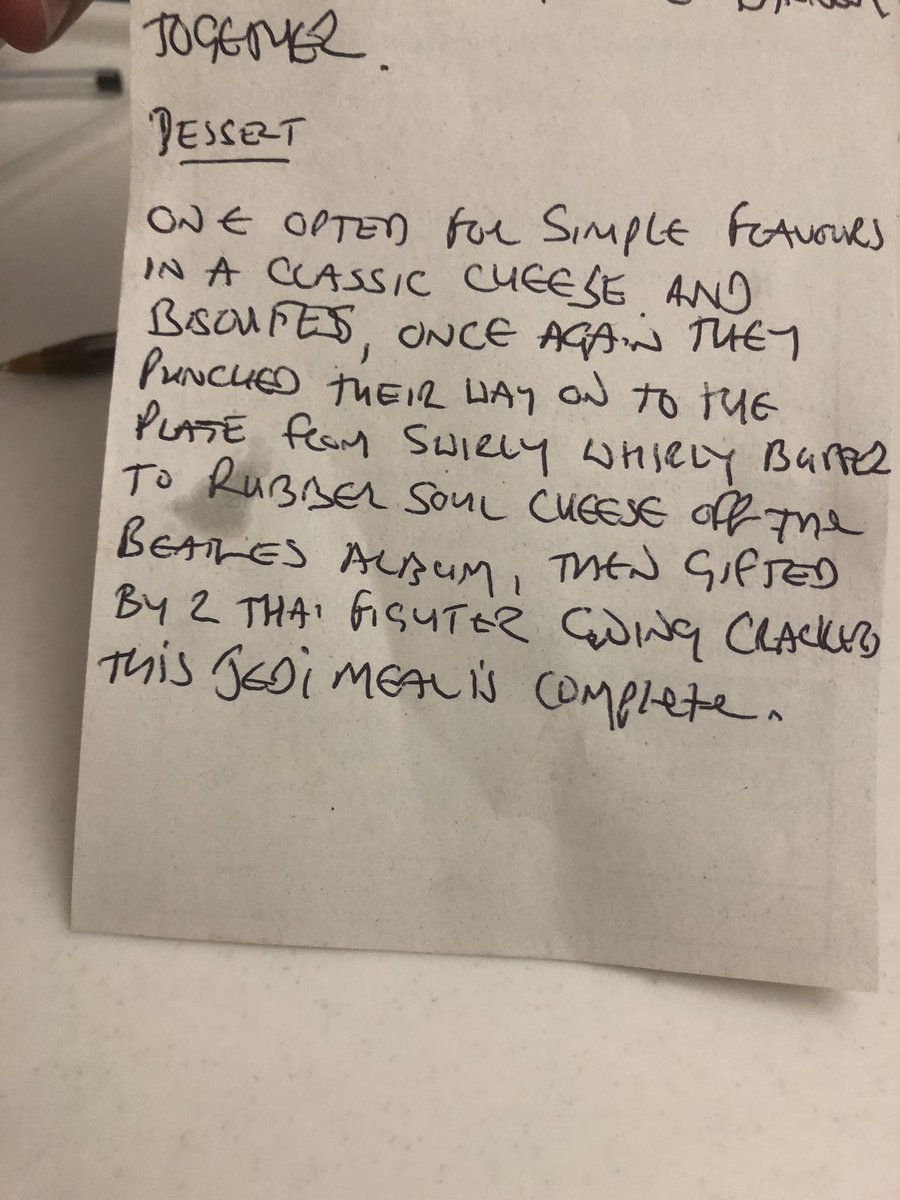 TOGETHER.
DESSERT
ONE OPTED FOR SIMPLE FLAVOURS
IN A CLASSIC CHEESE AND
, ONCE AGAIN THEY
PUNCHED THEIR WAY ON TO THE
PLATE FROM SWIRLY WHIRLY BUTTER
TO RUBBER SOUL CHEESE OFF THE
BEATLES ALBUM, THEN GIFTED
BY 2 THAI FIGHTER CRACKED
THIS JEDI MEAL IS COMPLETE.